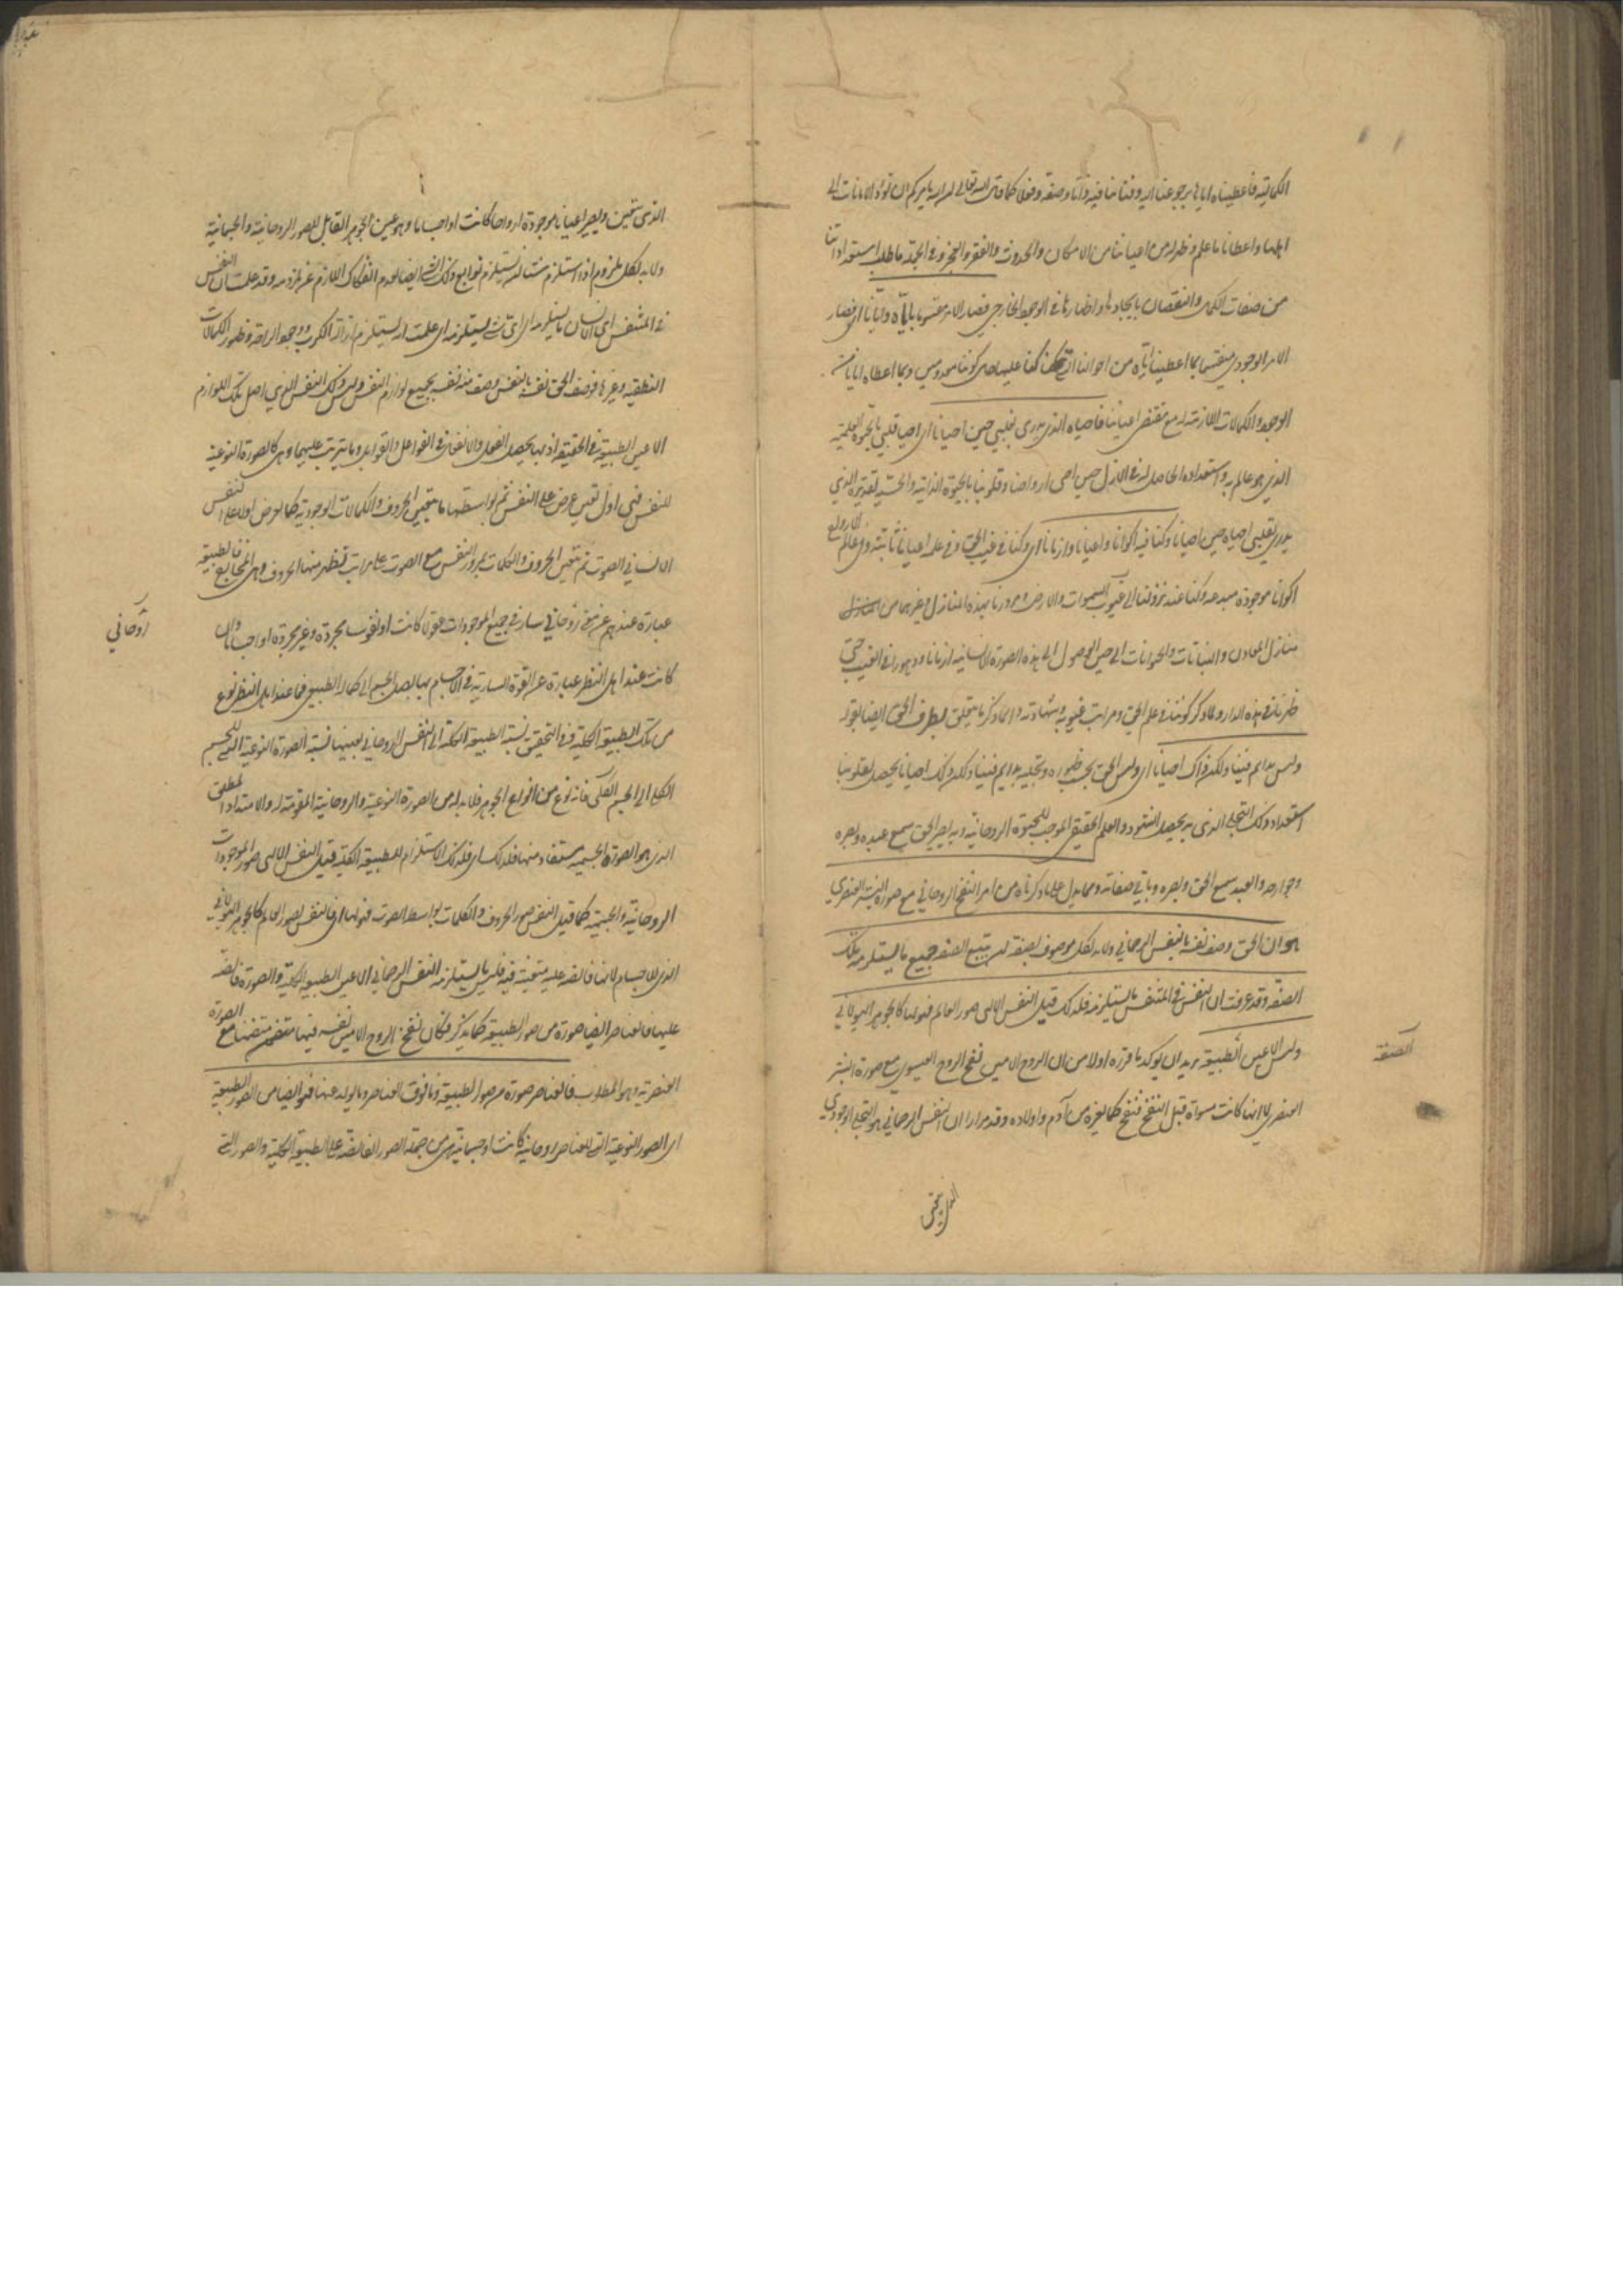 الكمالية فاعطيناه اياها برجوعنا اليه وفنائنا فيه ذاتا وصفة وفعلا كما قال الله تعالى ان الله يامركم ان تؤدوا الامانات الى
اهلها واعطانا ما علم وظهر له من اعياننا من الامكان والحدوث والفقر والعجز وفي الجملة ما طلب استعداداتنا
من صفات الكمال والنقصان بايجادها واظهارها في الوجود الخارجي فصار الامر مقسوما باياه وايانا اى فصار
الامر الوجودي منقسما بما اعطيناه اياه من احوالنا التي كنا عليها من كوننا معدومين وبما اعطاه ايانا من
الوجود والكمالات اللازمة له مع مقتضى اعياننا فاحياه الذي يدري بقلبي حين احيانا اى احيا قلبي بالحيوة العلمية
الذي هو عالم به واستعداده الحاصل له في الازل حين احيى ارواحنا وقلوبنا بالحيوة الذاتية والحسية لتقديره الذي
يدري بقلبي احياه حين احيانا وكنا فيه اكوانا واعيانا وازمانا اى وكنا في غيب الحق وفي علمه اعيانا ثابتة وفي عالم الارواح
اكوانا موجودة مبدعه وكنا عند نزولنا الى غيوب السموات والارض ومرورنا بهذه المنازل وغيرهما من
منازل المعادن والنباتات والحيوانات الى حين الوصول الى هذه الصورة الانسانية ازمانا ودهورا في الغيب حتى
ظهرنا في هذه الدار ولما ذكر كوننا في علم الحق ومراتب غيوبه وشهادته وانما ذكر ما يتعلق بطرف الحق ايضا بقوله
وليس بدائم فينا ولكن ذاك احيانا اى وليس الحق بحسب ظهوره وتجليه بدائم فينا ولكن ذلك احيانا يحصل لقلوبنا
استعداد ذلك التجلى الذي به يحصل الشهود والعلم الحقيقي الموجب للحيوة الروحانية وبه يصير الحق سمع عبده وبصره
وجوارحه والعبد سمع الحق وبصره وباقي صفاته ومما يدل على ما ذكرناه من امر النفخ الروحاني مع صورة البشر العنصري
هو ان الحق وصف نفسه بالنفس الرحماني ولابد لكل موصوف بصفة ان يتبع الصفة جميع ما يستلزمه تلك
الصفة وقد عرفت ان النفس في المتنفس ما يستلزمه فلذلك قبل النفس الالهى صور العالم فهو لها كالجوهر الهيولاني
وليس الا عين الطبيعة يريد ان يؤكد ما قرره اولا من ان الروح الامين نفخ الروح العيسوي مع صورة البشر
العنصري لا انها كانت مسواة قبل النفخ فنفخ كما لغيره من آدم واولاده وقد مر مرارا ان النفس الرحماني هو التجلى الوجودي
الصفة
الذي يتعين
الذي يتعين ويصير اعيانا موجودة ارواحا كانت او اجساما وهو عين الجوهر القابل للصور الروحانية والجسمانية
ولابد لكل ملزوم اذا استلزم شيئا ان يستلزم توابع ذلك الشئ ايضا لعدم انفكاك اللازم عن ملزومه وقد علمت ان النفس
في المتنفس اى الانسان ما يستلزمه اى اى شئ يستلزمه اى علمت انه يستلزم ازالة الكرب ووجود الراحة وظهور الكمالات
النطقية وغيرها فوصف الحق نفسه بالنفس وصف منه نفسه بجميع لوازم النفس وليس ذلك النفس الذي اصل تلك اللوازم
الا عين الطبيعة في الحقيقة اذ بها يحصل الفعل والانفعال في الفواعل والقوابل وما يترتب عليهما وهى كالصورة النوعية
للنفس فهى اول تعين عرض على النفس ثم بواسطتها ما يتعين الحروف والكمالات الوجودية كما يعرض اولا على النفس
الانساني الصوت ثم يتعين الحروف والكلمات بمرور النفس مع الصوت على مراتب تظهر منها الحروف وهى المخارج فالطبيعة
عبارة عندهم عن معنى روحاني سار في جميع الموجودات عقولا كانت او نفوسا مجردة وغير مجردة او اجساما وان
كانت عند اهل النظر عبارة عن القوة السارية في الاجسام بها يصل الجسم الى كماله الطبيعى فما عند اهل النظر نوع
من تلك الطبيعة الكلية ففي التحقيق نسبة الطبيعة الكلية الى النفس الرحماني بعينها نسبة الصورة النوعية التي للجسم
الكلى الى الجسم الكلى فانه نوع من انواع الجوهر فلابد له من الصورة النوعية والروحانية المقومة له والامتداد المطلق
الذي هو الصورة الجسمية مستفاد منها فلذلك اى فلذلك الاستلزام للطبيعة الكلية قبل النفس الالهى صور الموجودات
الروحانية والجسمية كما قبل النفس صور الحروف والكلمات بواسطة الصوت فهو لها اى فالنفس لصور العالم كالجوهر الهيولاني
الذي للاجسام لانها فائضة عليه متعينة فيه فليس ما يستلزمه النفس الرحماني الا عين الطبيعة الكلية والصورة فائضة
عليها فالعناصر ايضا صورة من صور الطبيعة كما يذكر فكان نفخ الروح الامين نفسه فيها متضمنا مع الصورة
العنصرية وهو المطلوب فالعناصر صورة من صور الطبيعة وما فوق العناصر وما تولد عنها فهو ايضا من الصور الطبيعية
اى الصور النوعية التي للعناصر روحانية كانت او جسمانية هى من جملة الصور الفائضة على الطبيعة الكلية والصور التي
روحاني